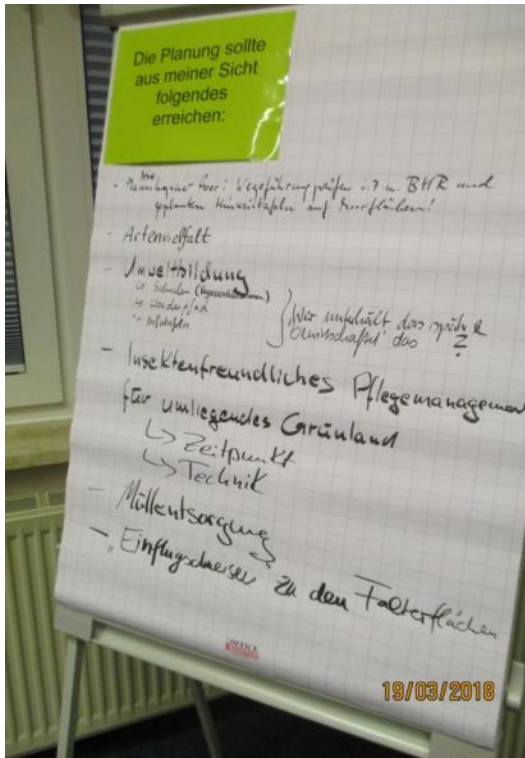 Die Planung sollte
aus meiner Sicht
folgendes
erreichen:
- Wegeführung prüfen BHR und
geplanten Hinweistafeln auf Moorflächen!
- Artenvielfalt
- Umweltbildung
↳ Schulen
↳ Infotafeln
Wer unterhält das später
das ?
- Insektenfreundliches Pflegemanagement
für umliegendes Grünland
↳ Zeitpunkt
↳ Technik
- Müllentsorgung
- "Einflugschneisen zu den Falterflächen
OFFICE
19/03/2018